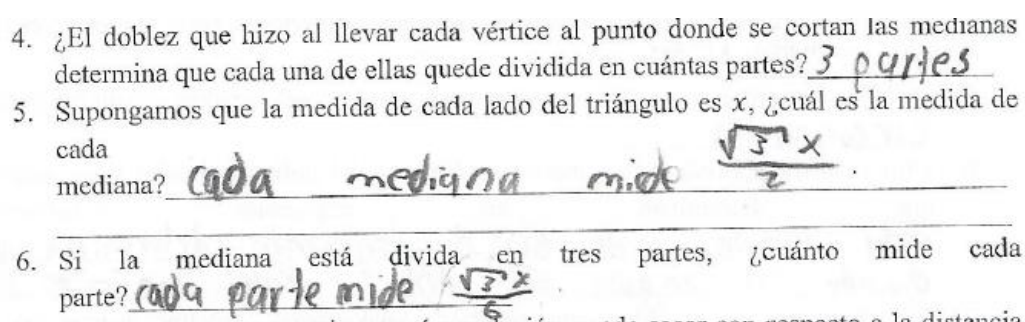 4. ¿El doblez que hizo al llevar cada vértice al punto donde se cortan las medianas
determina que cada una de ellas quede dividida en cuántas partes? 3 partes
5. Supongamos que la medida de cada lado del triángulo es x, ¿cuál es la medida de
cada
mediana? cada mediana mide √3 x / 2 .
6. Si la mediana está divida en tres partes, ¿cuánto mide cada
parte? cada parte mide √3 x / 6 .